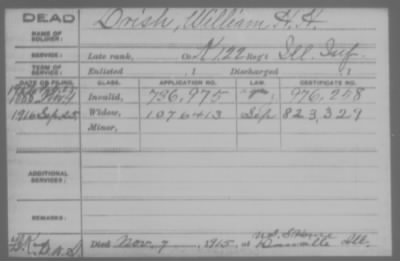 DEAD
NAME OF SOLDIER: Drish, William H. H.
SERVICE: Late rank, Co. K, 122 Reg't Ill. Inf.
TERM OF SERVICE: Enlisted , 1 Discharged , 1
DATE OF FILING. CLASS. APPLICATION NO. LAW. CERTIFICATE NO.
Invalid, 736,975 976,258
1916 Sep. 25 Widow, 1076413 Sep 823,329
Minor,
ADDITIONAL SERVICES:
REMARKS:
Died Nov. 7, 1915, at Danville Ill.